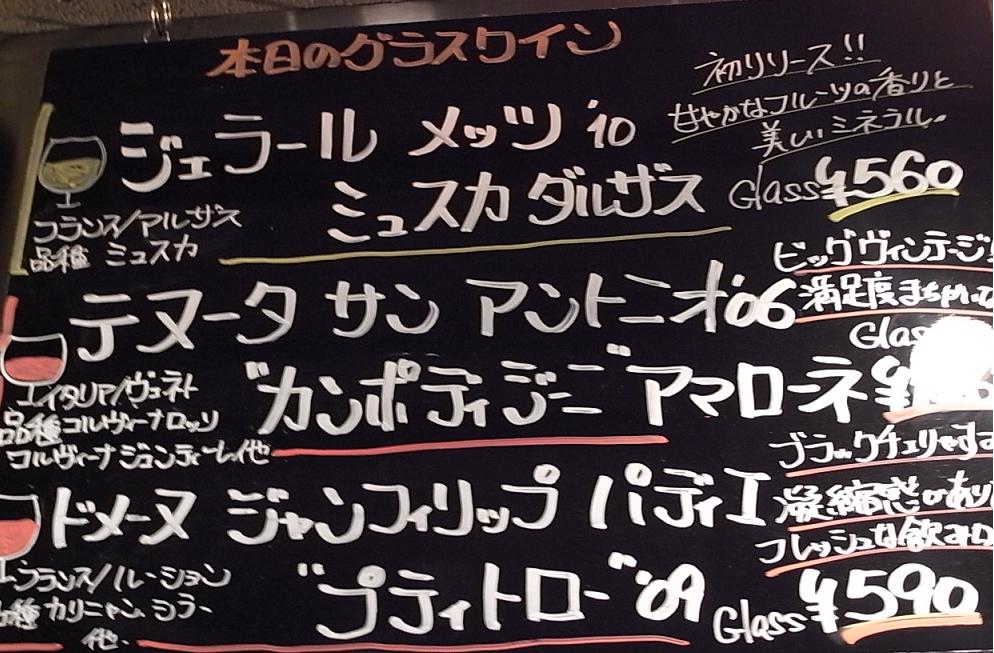 本日のグラスワイン
ジェラール メッツ '10
初リリース!!
甘やかなフルーツの香りと
美しいミネラル。
ミュスカ ダルザス
Glass ¥560
フランス/アルザス
品種 ミュスカ
テヌータ サン アントニオ '06
ビッグヴィンテージ
満足度まちがい
Glas
"カンポディジーニ" アマローネ ¥
イタリア/ヴェネト
品種 コルヴィーナロッソ
コルヴィーナジェンティーレ他
ドメーヌ ジャンフィリップ パディエ
ブラックチェリー
凝縮感があり
フレッシュな飲み口
"プティトロー" '09
Glass ¥590
フランス/ルーション
品種 カリニャン、シラー
他、